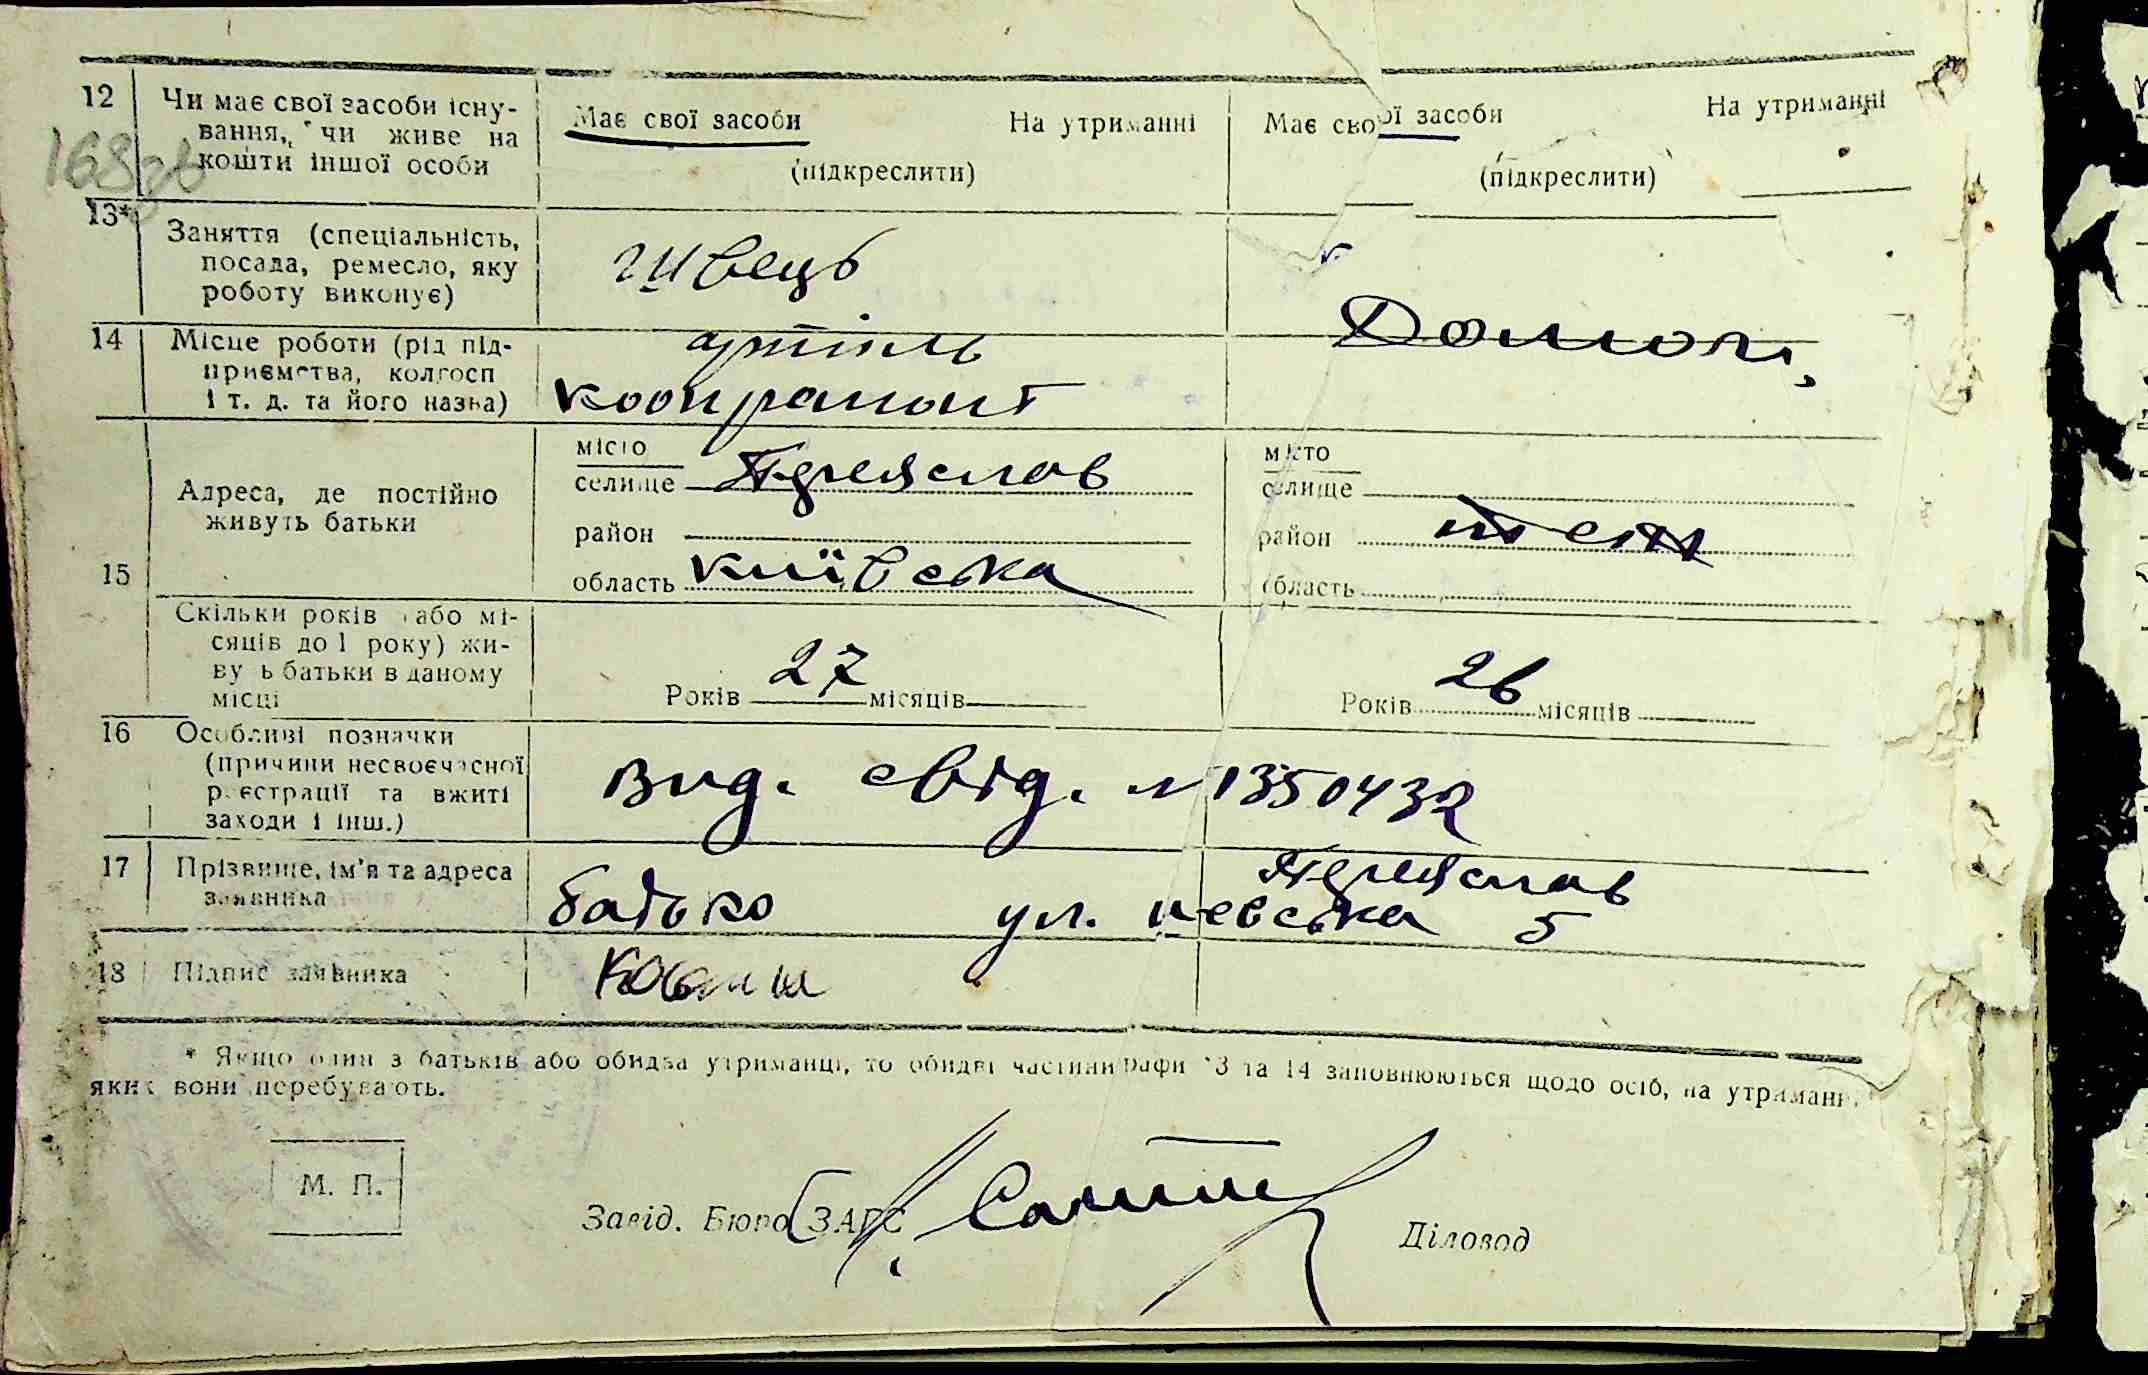 12 Чи має свої засоби існу-
вання, чи живе на
кошти іншої особи
Має свої засоби На утриманні
(підкреслити)
Має свої засоби На утриманні
(підкреслити)
168зв
13* Заняття (спеціальність,
посада, ремесло, яку
роботу виконує)
швець
14 Місце роботи (рід під-
приємства, колгосп
і т. д. та його назва)
артіль
коопремонт
Домогн,
15 Адреса, де постійно
живуть батьки
місто
селище Переяслав
район
область київська
місто
селище
район
область
Скільки років або мі-
сяців до 1 року) жи-
вуть батьки в даному
місці
Років 27 місяців
Років 26 місяців
16 Особливі позначки
(причини несвоєчасної
реєстрації та вжиті
заходи і інш.)
Вид. свід. N 1350432
17 Прізвище, ім'я та адреса
заявника
Переяслав
батько ул. 5
18 Підпис заявника
* Якщо один з батьків або обидва утриманці, то обидві частини графи 13 та 14 заповнюються щодо осіб, на утриманні
яких вони перебувають.
М. П.
Завід. Бюро ЗАГС
Діловод